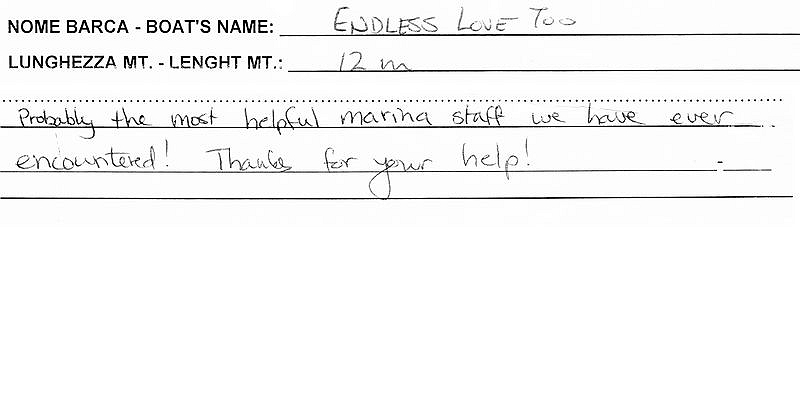 NOME BARCA - BOAT'S NAME: ENDLESS LOVE TOO
LUNGHEZZA MT. - LENGHT MT.: 12 m
Probably the most helpful marina staff we have ever
encountered! Thanks for your help!